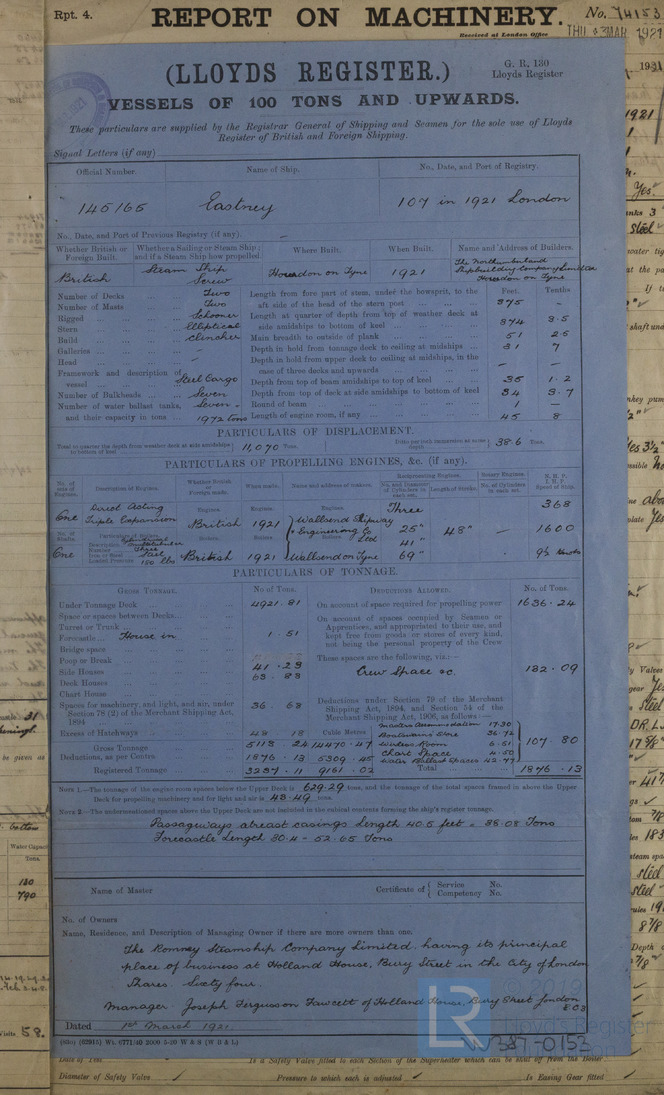 Rpt. 4.
REPORT ON MACHINERY.
No. 74153
Received at London Office
THU 03 MAR 1921
(LLOYDS REGISTER.)
G. R. 130
Lloyds Register
VESSELS OF 100 TONS AND UPWARDS.
These particulars are supplied by the Registrar General of Shipping and Seamen for the sole use of Lloyds
Register of British and Foreign Shipping.
Signal Letters (if any)
Official Number. Name of Ship. No., Date, and Port of Registry.
145165 Eastney 107 in 1921 London
No., Date, and Port of Previous Registry (if any). –
Whether British or Foreign Built. Whether a Sailing or Steam Ship; and if a Steam Ship how propelled. Where Built. When Built. Name and Address of Builders.
British Steam Ship Screw Howdon on Tyne 1921 The Northumberland Shipbuilding Company Limited Howdon on Tyne
Number of Decks Two
Number of Masts Two
Rigged Schooner
Stern Elliptical
Build Clincher
Galleries –
Head –
Framework and description of vessel Steel Cargo
Number of Bulkheads Seven
Number of water ballast tanks, Seven -
and their capacity in tons 1972 tons
Feet. Tenths
Length from fore part of stem, under the bowsprit, to the aft side of the head of the stern post 375 –
Length at quarter of depth from top of weather deck at side amidships to bottom of keel 374 3.5
Main breadth to outside of plank 51 2.5
Depth in hold from tonnage deck to ceiling at midships 31 7
Depth in hold from upper deck to ceiling at midships, in the case of three decks and upwards – –
Depth from top of beam amidships to top of keel 35 1.2
Depth from top of deck at side amidships to bottom of keel 34 3.7
Round of beam 1 –
Length of engine room, if any 45 8
PARTICULARS OF DISPLACEMENT.
Total to quarter the depth from weather deck at side amidships to bottom of keel 11,070 Tons.
Ditto per inch immersion at same depth 38.6 Tons.
PARTICULARS OF PROPELLING ENGINES, &c. (if any).
No. of sets of Engines. Description of Engines. Whether British or Foreign made. When made. Name and address of makers. Reciprocating Engines. No. and Diameter of Cylinders in each set. Length of Stroke. Rotary Engines. No. of Cylinders in each set. N. H. P. I. H. P. Speed of Ship.
One Direct Acting Triple Expansion Engines. British Engines. 1921 Engines. Wallsend Slipway & Engineering Co Ltd Three 25" 41" 69" 48" – 368 1600 9½ knots
No. of Shafts. Particulars of Boilers.
One Description Cylindrical Multitubular Number Three Iron or Steel Steel Loaded Pressure 180 lbs Boilers. British Boilers. 1921 Wallsend on Tyne
PARTICULARS OF TONNAGE.
GROSS TONNAGE. No of Tons.
Under Tonnage Deck 4921.81
Space or spaces between Decks
Turret or Trunk
Forecastle House in 1.51
Bridge space
Poop or Break
Side Houses 41.23
Deck Houses 63.83
Chart House
Spaces for machinery, and light, and air, under Section 78 (2) of the Merchant Shipping Act, 1894 36.68
Excess of Hatchways 48 18 Cubic Metres
Gross Tonnage 5113 24 14470.47
Deductions, as per Contra 1876.13 5309.45
Registered Tonnage 3237.11 9161.02
DEDUCTIONS ALLOWED. No. of Tons.
On account of space required for propelling power 1636.24
On account of spaces occupied by Seamen or Apprentices, and appropriated to their use, and kept free from goods or stores of every kind, not being the personal property of the Crew
These spaces are the following, viz.:–
Crew Space &c. 132.09
Deductions under Section 79 of the Merchant Shipping Act, 1894, and Section 54 of the Merchant Shipping Act, 1906, as follows:–
Masters Accommodation 17.30
Boatswains Store 36.72
Wireless Room 6.51
Chart Space 4.50
Water Ballast Spaces 42.77
107.80
Total 1876.13
NOTE 1.—The tonnage of the engine room spaces below the Upper Deck is 629.29 tons, and the tonnage of the total spaces framed in above the Upper
Deck for propelling machinery and for light and air is 43.49 tons.
NOTE 2.—The undermentioned spaces above the Upper Deck are not included in the cubical contents forming the ship's register tonnage.
Passageways abreast casings Length 40.5 feet = 38.08 Tons
Forecastle Length 30.4 – 52.65 Tons
Name of Master Certificate of { Service No. Competency No.
No. of Owners
Name, Residence, and Description of Managing Owner if there are more owners than one.
The Romney Steamship Company Limited, having its principal
place of business at Holland House, Bury Street in the City of London
Shares. Sixty four.
Manager Joseph Fergusson Fawcett of Holland House, Bury Street London
E.C.3
Dated 1st March 1921.
(820) (62915) Wt. 6771/40 2000 5-20 W & S (W B & L)
© 2019
LR
Lloyd's Register
W387-0153
Is a Safety Valve fitted to each Section of the Superheater which can be shut off from the Boiler
Diameter of Safety Valve
Pressure to which each is adjusted
Is Easing Gear fitted